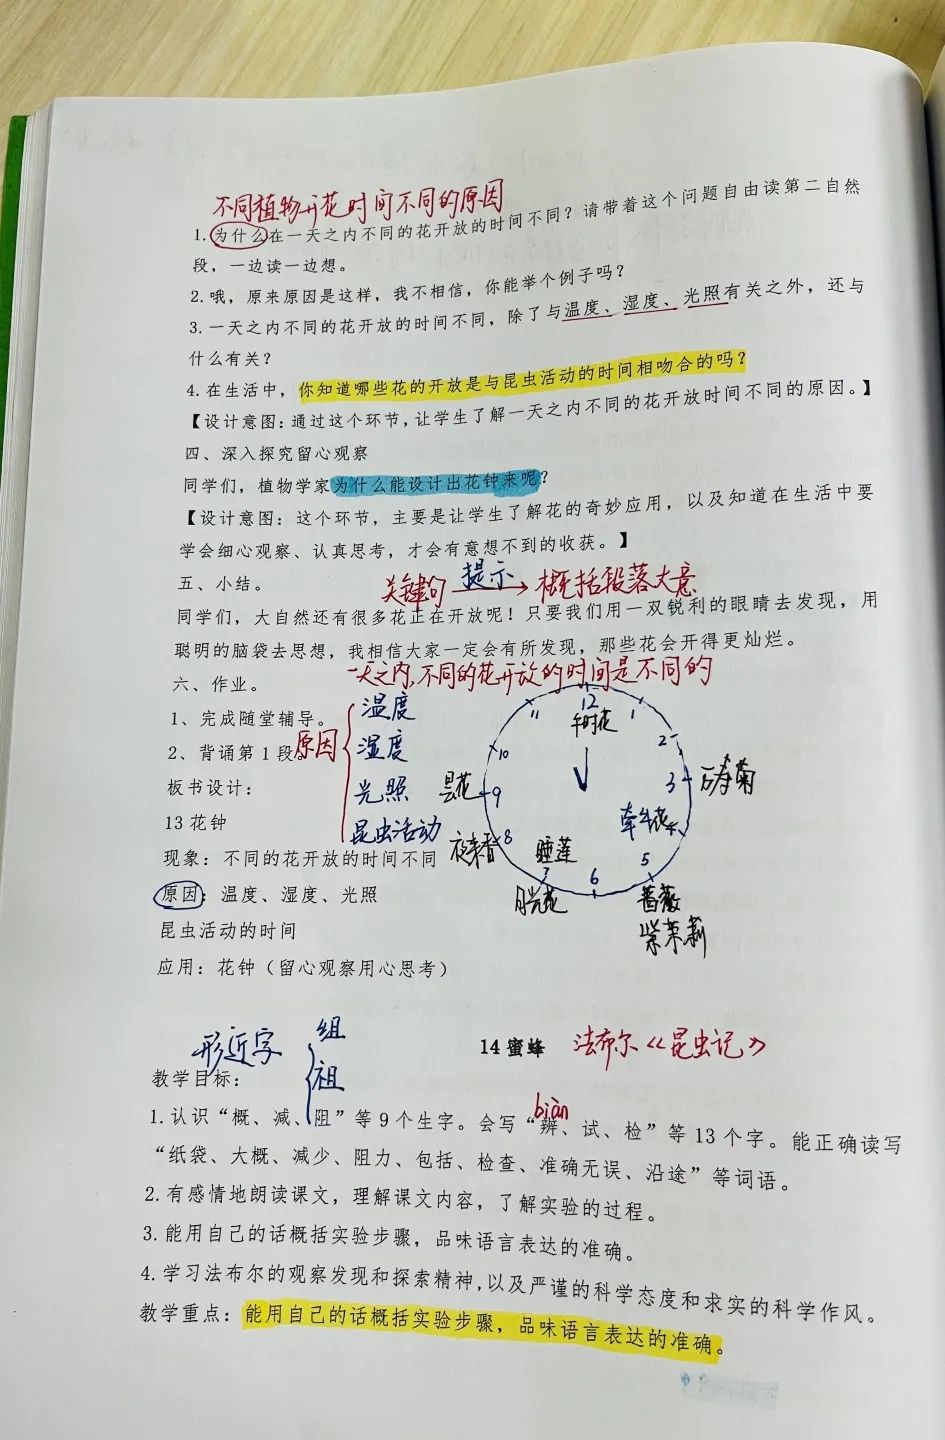 不同植物开花时间不同的原因
1.为什么在一天之内不同的花开放的时间不同？请带着这个问题自由读第二自然
段，一边读一边想。
2.哦，原来原因是这样，我不相信，你能举个例子吗？
3.一天之内不同的花开放的时间不同，除了与温度、湿度、光照有关之外，还与
什么有关？
4.在生活中，你知道哪些花的开放是与昆虫活动的时间相吻合的吗？
【设计意图：通过这个环节，让学生了解一天之内不同的花开放时间不同的原因。】
四、深入探究留心观察
同学们，植物学家为什么能设计出花钟来呢？
【设计意图：这个环节，主要是让学生了解花的奇妙应用，以及知道在生活中要
学会细心观察、认真思考，才会有意想不到的收获。】
五、小结。
关键句 提示 → 概括段落大意
同学们，大自然还有很多花正在开放呢！只要我们用一双锐利的眼睛去发现，用
聪明的脑袋去思想，我相信大家一定会有所发现，那些花会开得更灿烂。
一天之内，不同的花开放的时间是不同的
六、作业。
1、完成随堂辅导。
2、背诵第1段
原因
温度
湿度
光照
昆虫活动
12
午时花
11
1
10
2
昙花
9
3
万寿菊
牵牛花
4
夜来香
8
睡莲
5
7
6
月光花
蔷薇
紫茉莉
板书设计：
13花钟
现象：不同的花开放的时间不同
原因：温度、湿度、光照
昆虫活动的时间
应用：花钟（留心观察用心思考）
形近字
组
祖
14蜜蜂
法布尔《昆虫记》
教学目标：
biàn
1.认识“概、减、阻”等9个生字。会写“辨、试、检”等13个字。能正确读写
“纸袋、大概、减少、阻力、包括、检查、准确无误、沿途”等词语。
2.有感情地朗读课文，理解课文内容，了解实验的过程。
3.能用自己的话概括实验步骤，品味语言表达的准确。
4.学习法布尔的观察发现和探索精神，以及严谨的科学态度和求实的科学作风。
教学重点：能用自己的话概括实验步骤，品味语言表达的准确。